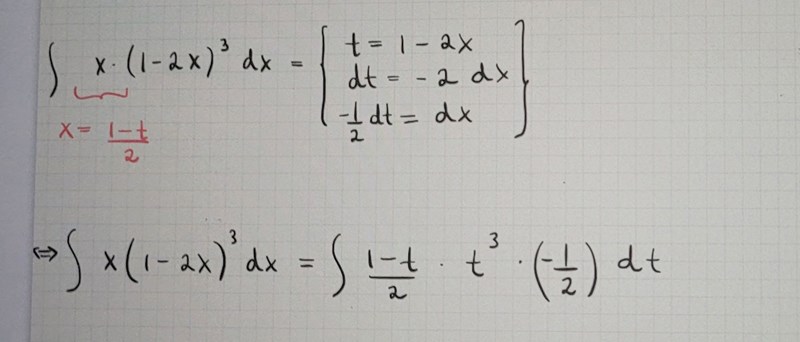 ∫ x · (1 - 2x)³ dx = { t = 1 - 2x
dt = - 2 dx
-1/2 dt = dx }
x = (1-t)/2
⇔ ∫ x(1 - 2x)³ dx = ∫ (1-t)/2 · t³ · (-1/2) dt